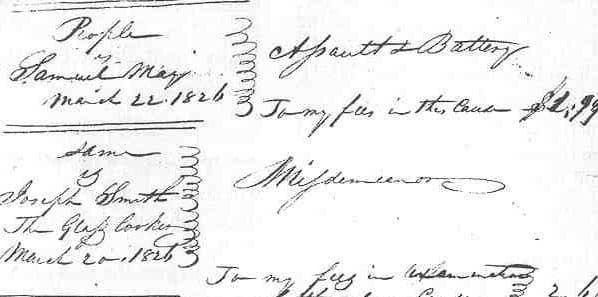 People
vs
Samuel May
March 22. 1826
Assault & Battery
To my fees in this Cause $1,99
same
vs
Joseph Smith
The Glass looker
March 20. 1826
Misdemeanor
To my fees in examination